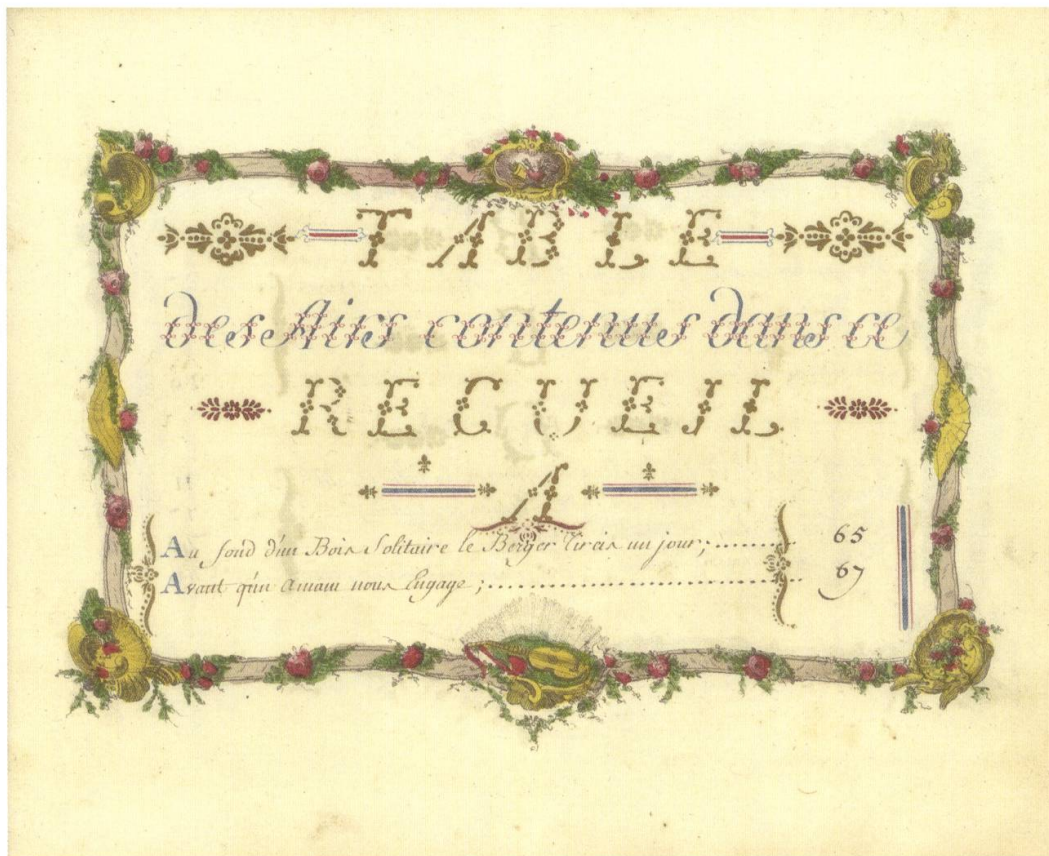 TABLE
des Airs contenus dans ce
RECUEIL
A
Au fond d'un Bois Solitaire le Berger Tircis un jour; 65
Avant qu'un amant nous Engage; 67